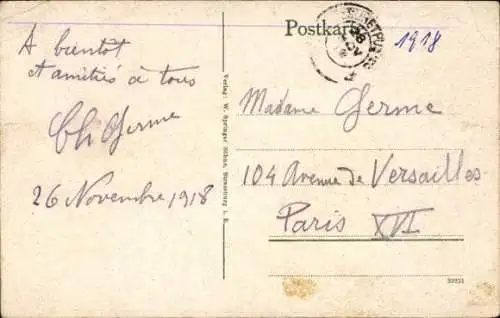 Postkarte
1918
A bientot
et amitiés à tous
Ch Germe
26 Novembre 1918
Verlag: W. Springer Söhne, Strassburg i. E.
Madame Germe
104 Avenue de Versailles
Paris XVI